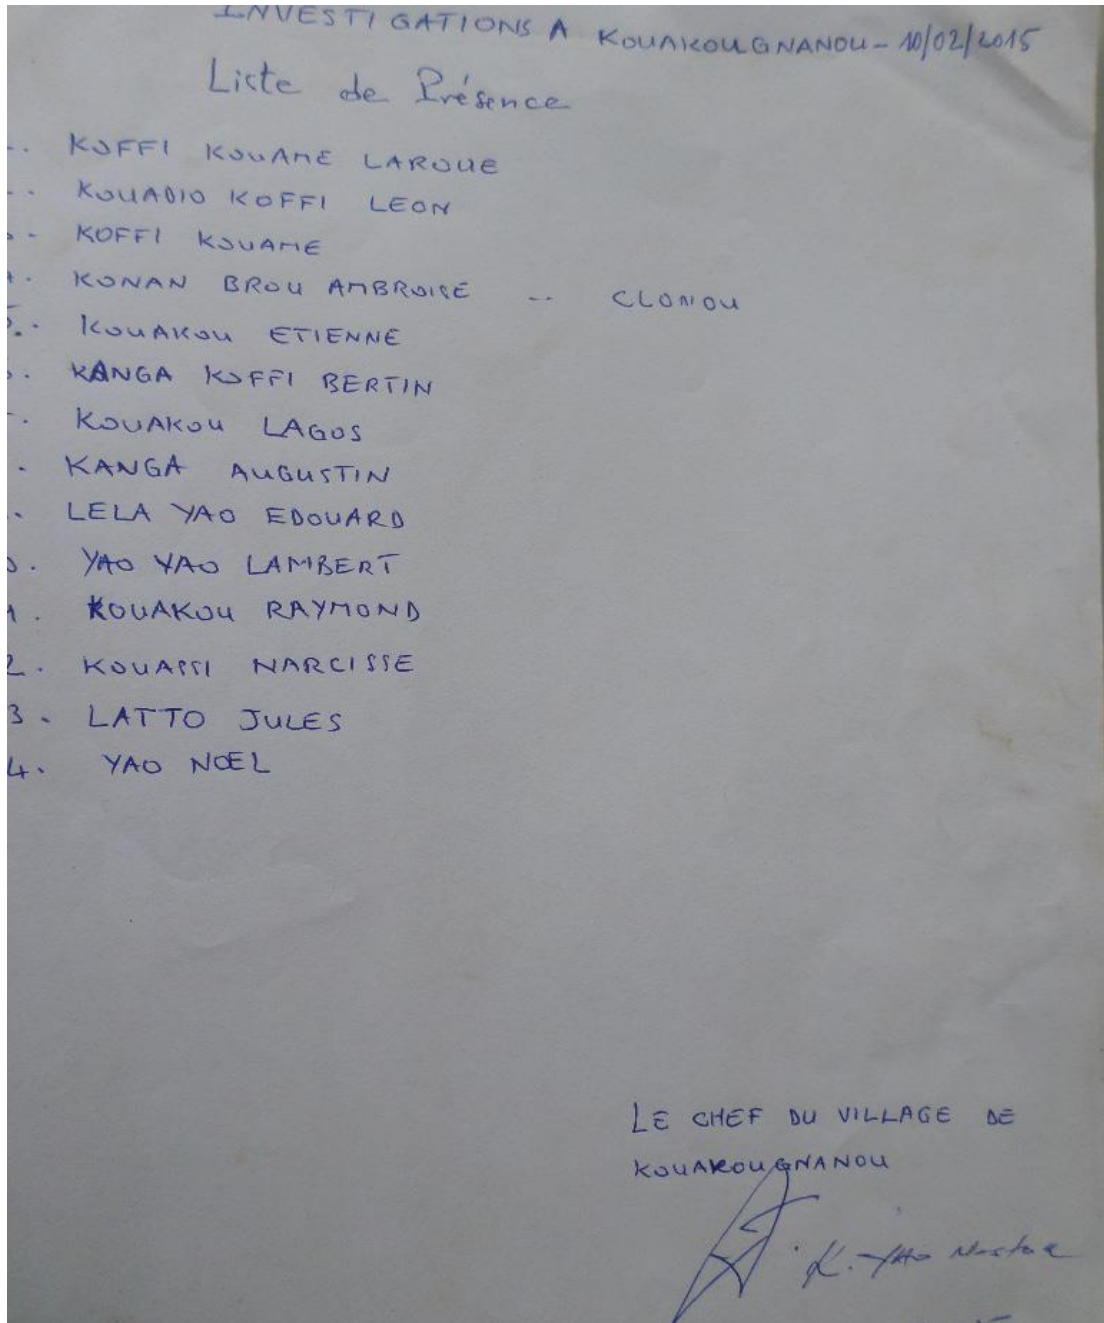 INVESTIGATIONS A KOUAKOUGNANOU - 10/02/2015
Liste de Présence
KOFFI KOUAME LAROUE
KOUADIO KOFFI LEON
KOFFI KOUAME
KONAN BROU AMBROISE -- CLONOU
5. KOUAKOU ETIENNE
KANGA KOFFI BERTIN
KOUAKOU LAGOS
KANGA AUGUSTIN
LELA YAO EDOUARD
YAO YAO LAMBERT
1. KOUAKOU RAYMOND
2. KOUASSI NARCISSE
3. LATTO JULES
4. YAO NOEL
LE CHEF DU VILLAGE DE
KOUAKOUGNANOU
K. YAO